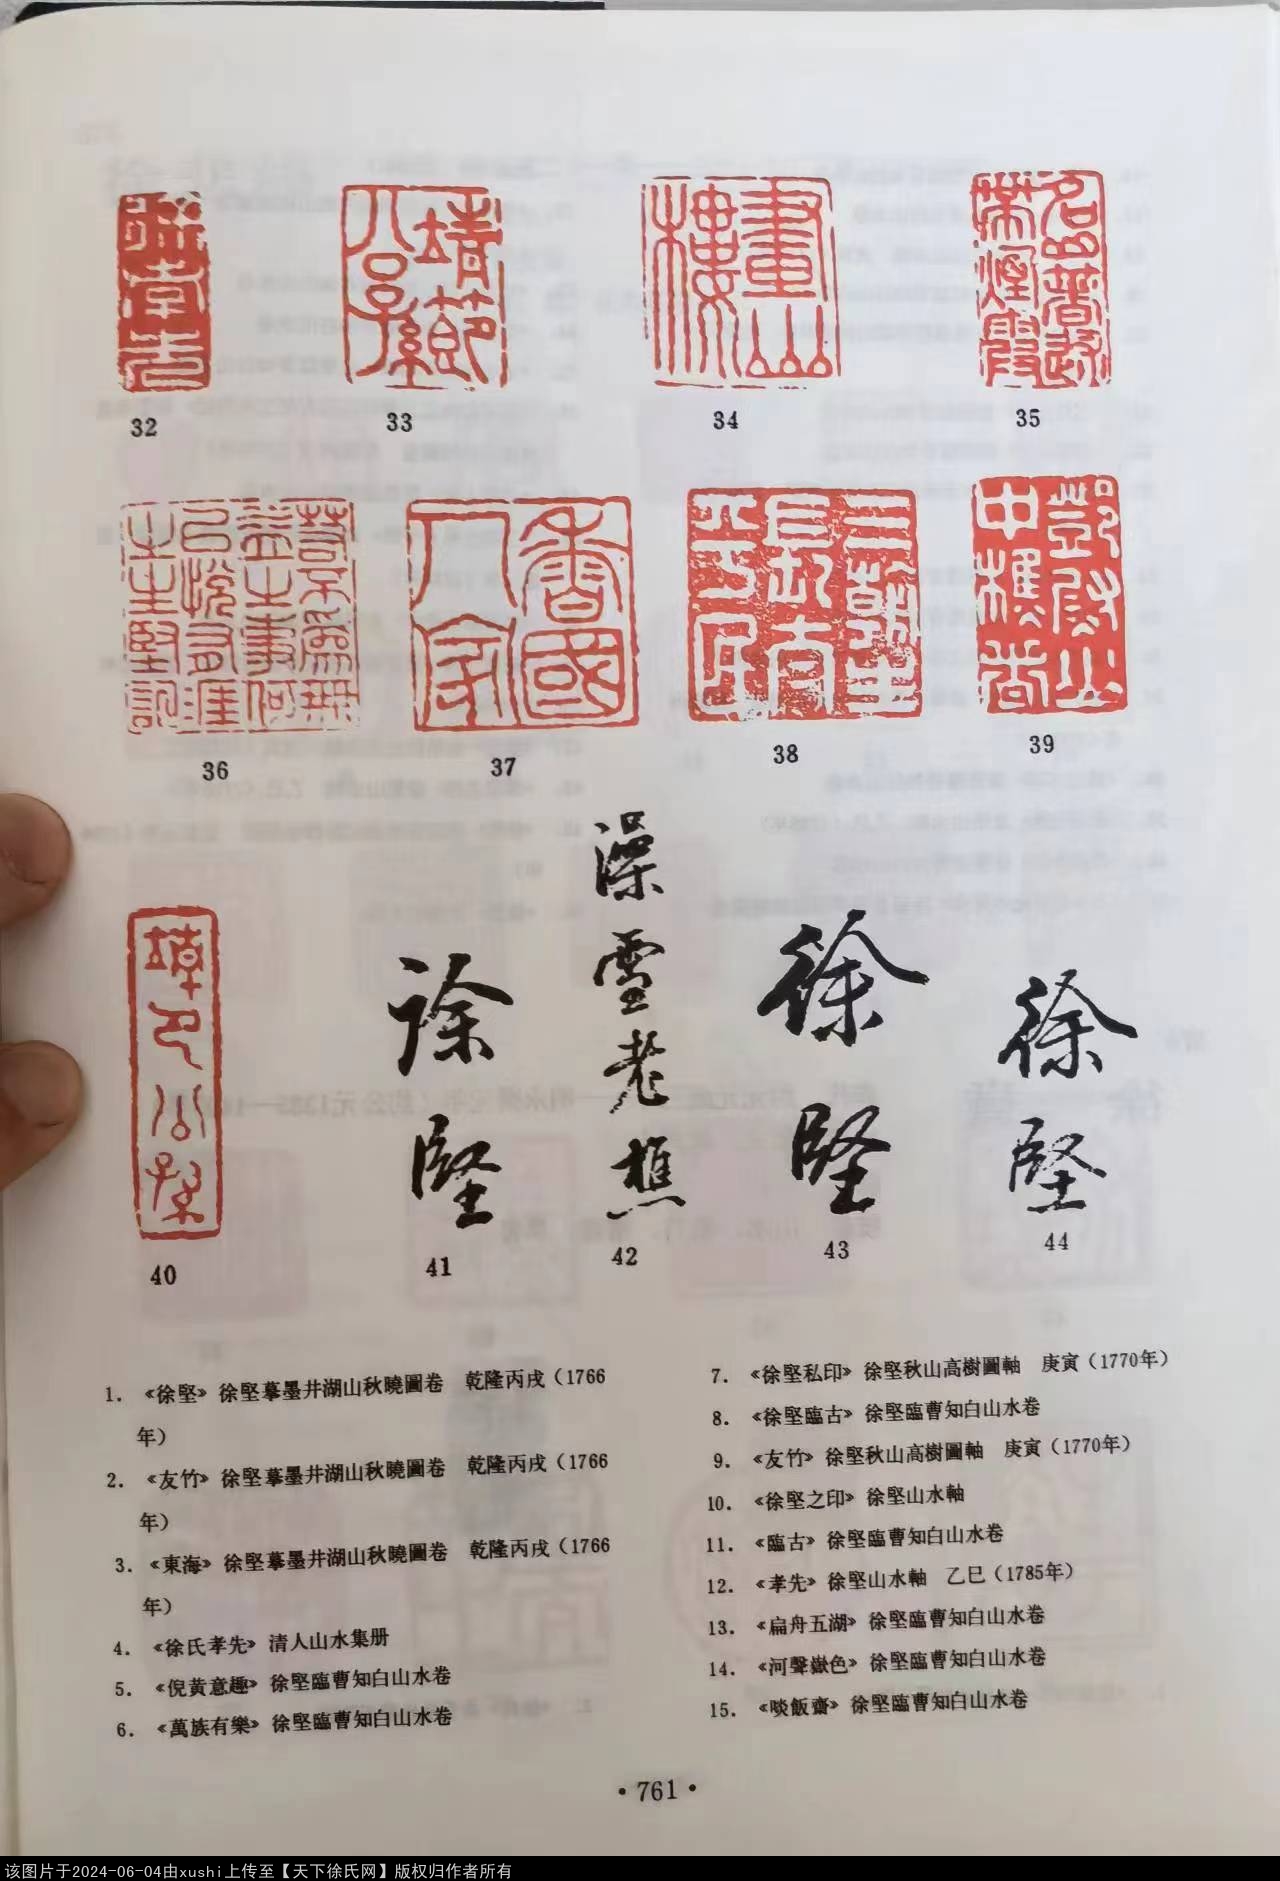 畫山樓
32
33
34
35
若不為無
益之事何
以悅有涯
之生堅記
香國
人家
鄧尉山
中樵者
36
37
38
39
40
徐堅
澡雪老樵
徐堅
徐堅
41
42
43
44
1. 《徐堅》 徐堅摹墨井湖山秋曉圖卷 乾隆丙戌（1766
年）
2. 《友竹》 徐堅摹墨井湖山秋曉圖卷 乾隆丙戌（1766
年）
3. 《東海》 徐堅摹墨井湖山秋曉圖卷 乾隆丙戌（1766
年）
4. 《徐氏孝先》 清人山水集册
5. 《倪黃意趣》 徐堅臨曹知白山水卷
6. 《萬族有樂》 徐堅臨曹知白山水卷
7. 《徐堅私印》 徐堅秋山高樹圖軸 庚寅（1770年）
8. 《徐堅臨古》 徐堅臨曹知白山水卷
9. 《友竹》 徐堅秋山高樹圖軸 庚寅（1770年）
10. 《徐堅之印》 徐堅山水軸
11. 《臨古》 徐堅臨曹知白山水卷
12. 《孝先》 徐堅山水軸 乙巳（1785年）
13. 《扁舟五湖》 徐堅臨曹知白山水卷
14. 《河聲嶽色》 徐堅臨曹知白山水卷
15. 《啖飯齋》 徐堅臨曹知白山水卷
·761·
该图片于2024-06-04由xushi上传至【天下徐氏网】版权归作者所有